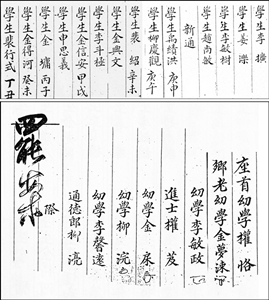 學生李 㰒
學生姜 濚
學生李敏樹
學生趙尚敏
新通
學生高績洪 庚申
學生柳慶觀 庚子
學生裴 紹 辛未
學生金興文
學生李斗極
學生金信安 甲戌
學生申思義
學生金 墉 丙子
學生金得河 癸未
學生裴行式 丁丑
座首幼學權 恪
鄕老幼學金夢涑
幼學李敏政
進士權 芨
幼學金
幼學柳 浣
幼學李馨遠
通德郎柳 濎
際